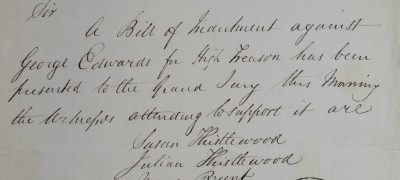 Sir
A Bill of Indictment against
George Edwards for High Treason has been
presented to the Grand Jury this Morning
the Witnesses attending to support it are
Susan Thistlewood
Julian Thistlewood
Brunt